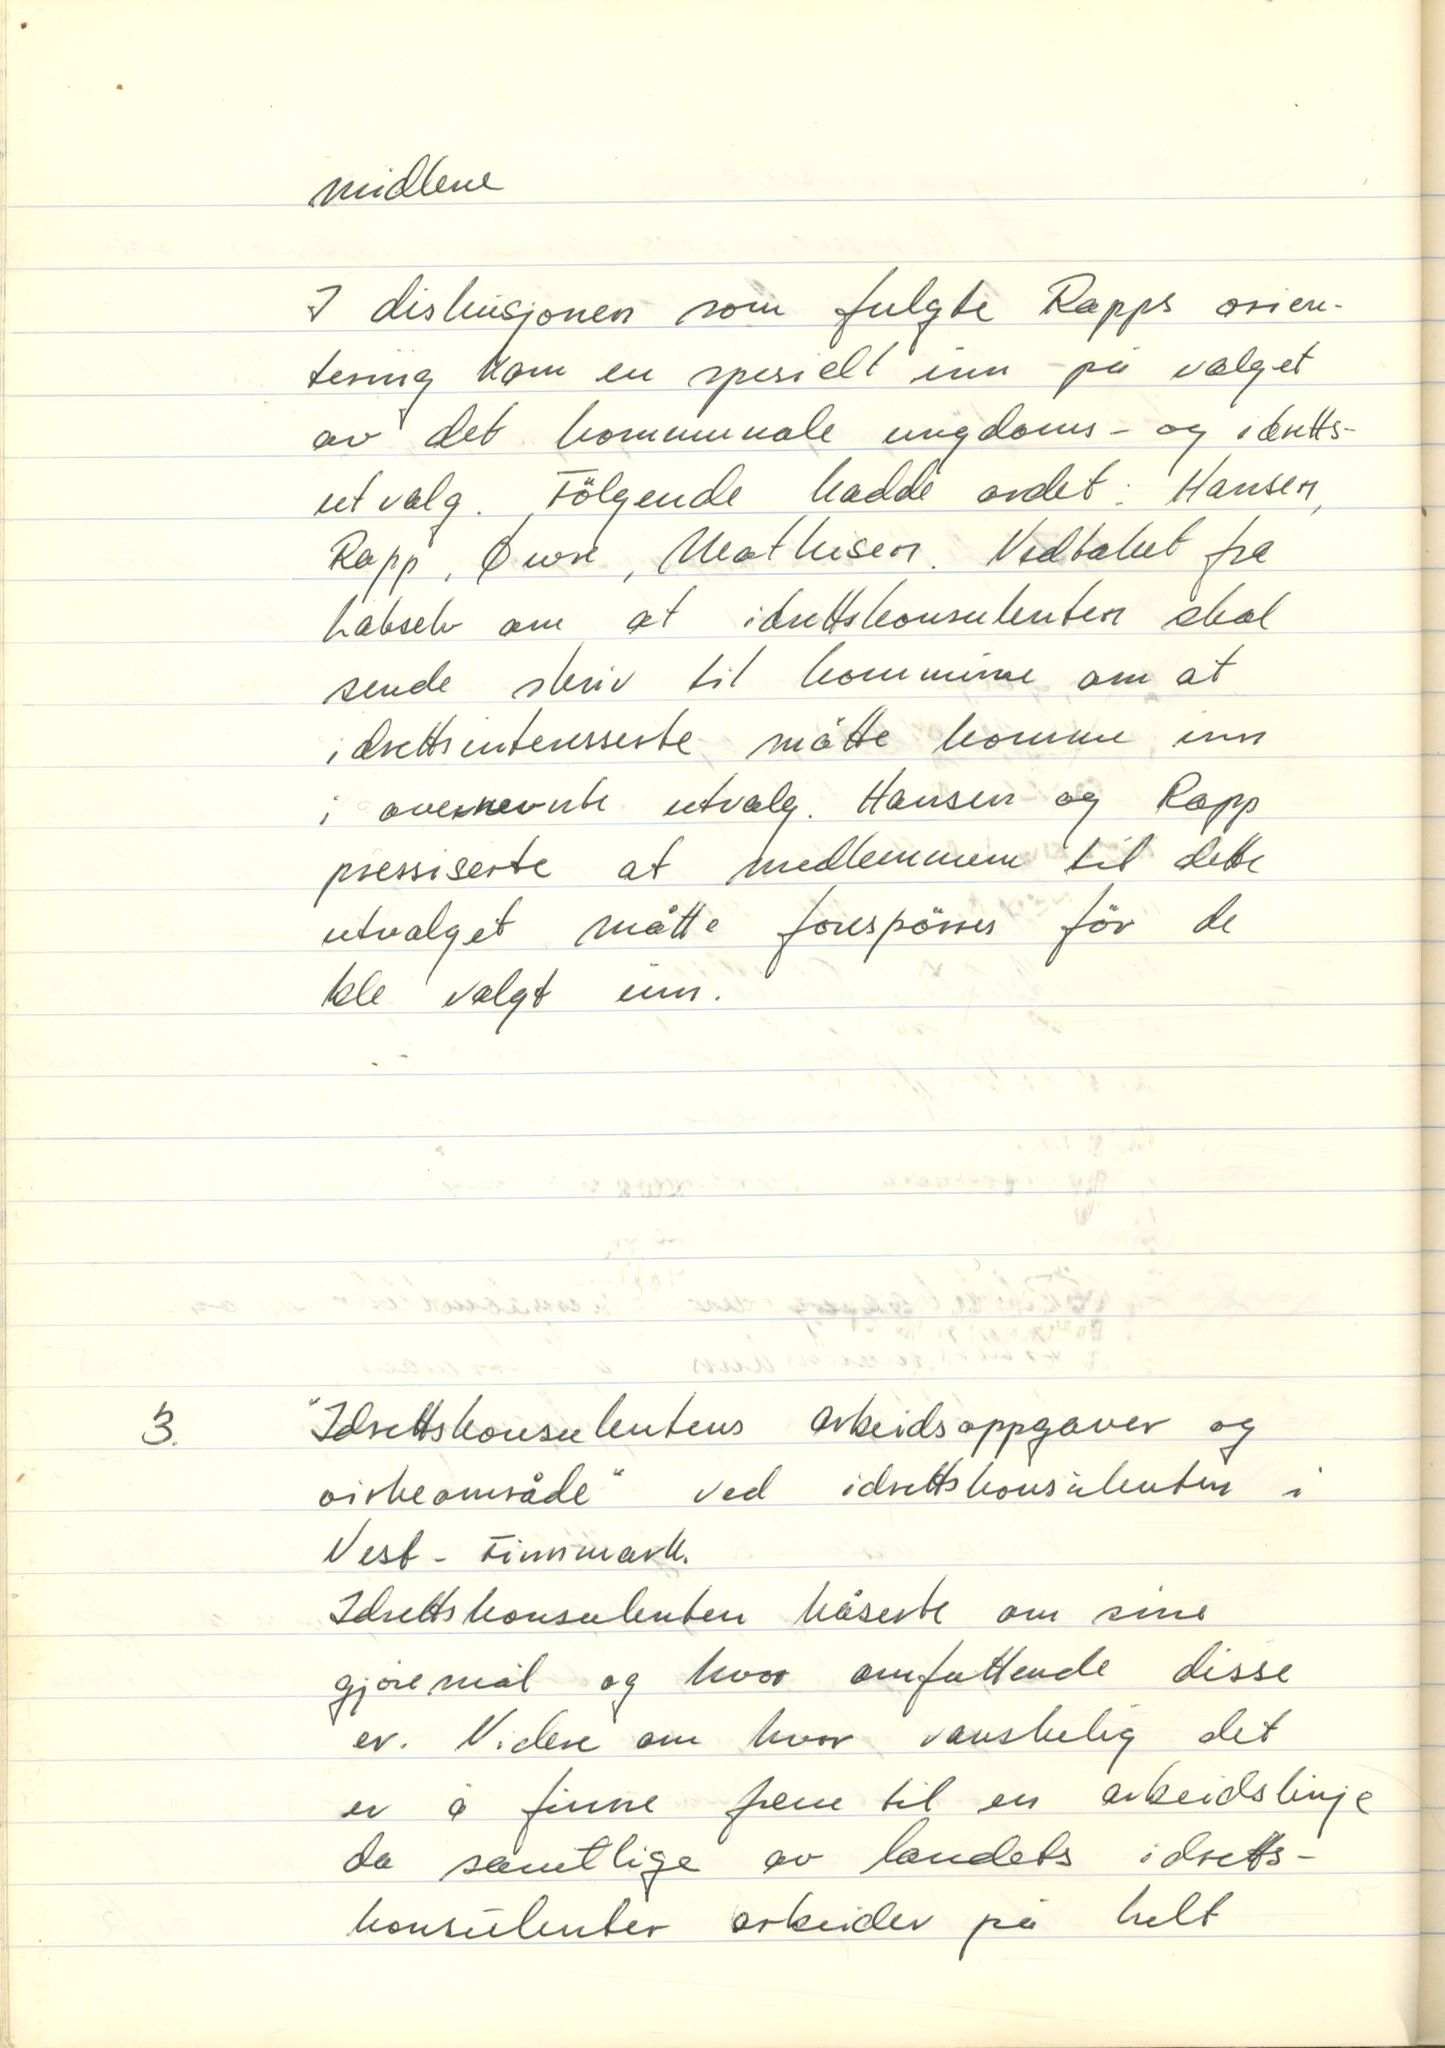 midlene
I diskusjonen som fulgte Rapps orien-
tering kom en spesielt inn på valget
av det kommunale ungdoms- og idretts-
utvalg. Følgende hadde ordet: Hansen,
Rapp, Mathisen. Vedtaket fra
Lakselv om at idrettskonsulenten skal
sende skriv til kommune om at
idrettsinteresserte måtte komme inn
i ovennevnte utvalg. Hansen og Rapp
pressiserte at medlemmene til dette
utvalget måtte forespörres för de
ble valgt inn.
3. "Idrettskonsulentens arbeidsoppgaver og
virkeområde" ved idrettskonsulenten i
Vest-Finnmark.
Idrettskonsulenten kåserte om sine
gjøremål og hvor omfattende disse
er. Videre om hvor vanskelig det
er å finne frem til en arbeidslinje
da samtlige av landets idretts-
konsulenter arbeider på helt